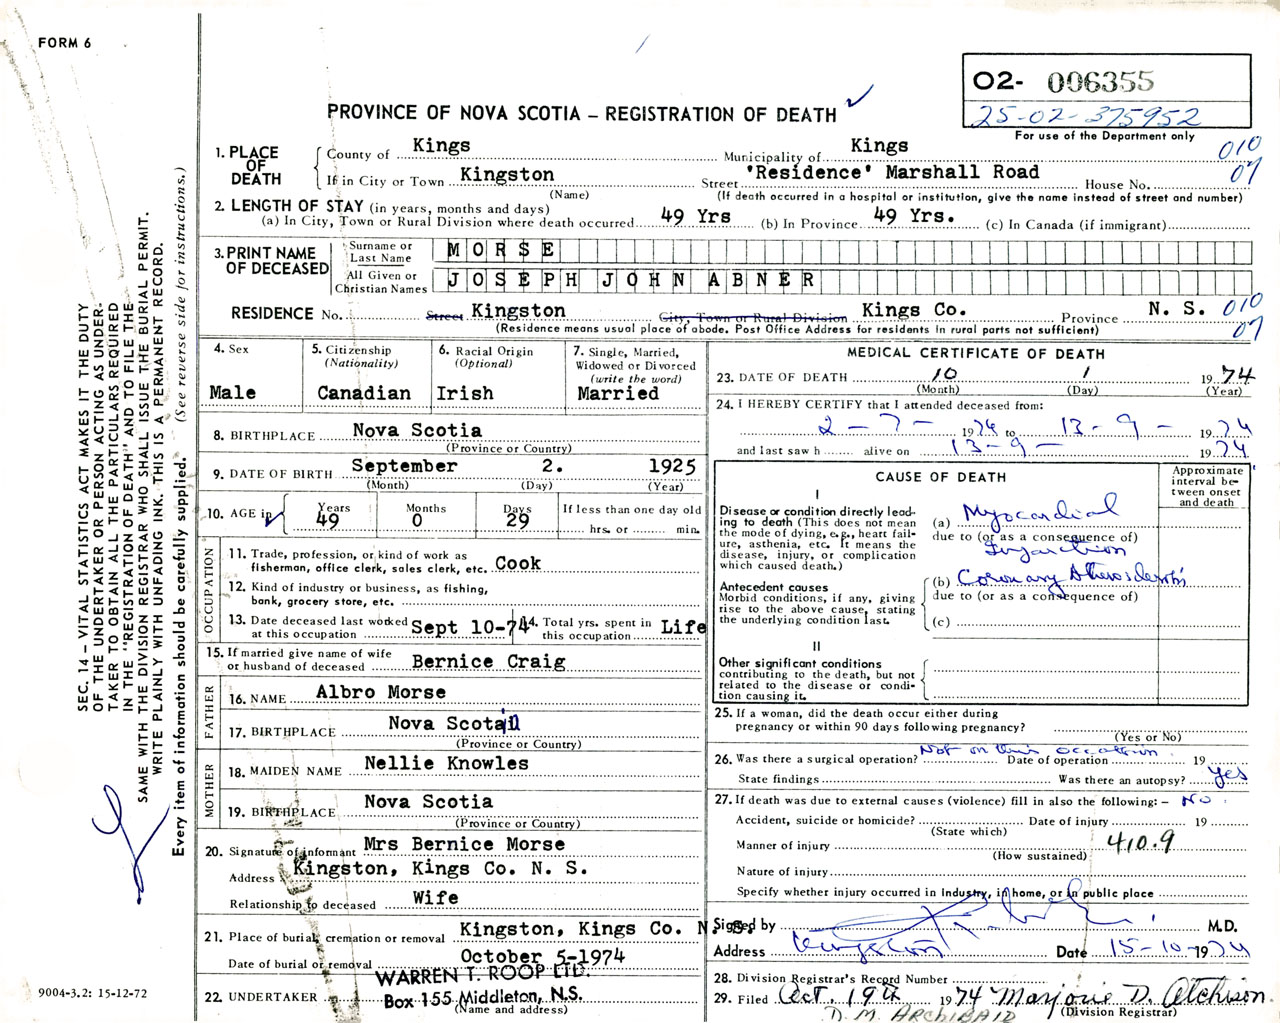 FORM 6
O2- 006355
25-02-375952
For use of the Department only
PROVINCE OF NOVA SCOTIA – REGISTRATION OF DEATH
1. PLACE OF DEATH
County of Kings Municipality of Kings 010
If in City or Town Kingston Street 'Residence' Marshall Road House No. 07
(Name) (If death occurred in a hospital or institution, give the name instead of street and number)
2. LENGTH OF STAY (in years, months and days)
(a) In City, Town or Rural Division where death occurred 49 Yrs (b) In Province 49 Yrs. (c) In Canada (if immigrant)
3. PRINT NAME OF DECEASED
Surname or Last Name MORSE
All Given or Christian Names JOSEPH JOHN ABNER
RESIDENCE No. Street Kingston City, Town or Rural Division Kings Co. Province N. S. 010
(Residence means usual place of abode. Post Office Address for residents in rural parts not sufficient) 07
4. Sex
Male
5. Citizenship
(Nationality)
Canadian
6. Racial Origin
(Optional)
Irish
7. Single, Married,
Widowed or Divorced
(write the word)
Married
8. BIRTHPLACE Nova Scotia
(Province or Country)
9. DATE OF BIRTH September 2. 1925
(Month) (Day) (Year)
10. AGE in
Years Months Days If less than one day old
49 0 29 hrs. or min.
OCCUPATION
11. Trade, profession, or kind of work as
fisherman, office clerk, sales clerk, etc. Cook
12. Kind of industry or business, as fishing,
bank, grocery store, etc.
13. Date deceased last worked
at this occupation Sept 10-74
14. Total yrs. spent in
this occupation Life
15. If married give name of wife
or husband of deceased Bernice Craig
FATHER
16. NAME Albro Morse
17. BIRTHPLACE Nova Scotain
(Province or Country)
MOTHER
18. MAIDEN NAME Nellie Knowles
19. BIRTHPLACE Nova Scotia
(Province or Country)
20. Signature of informant Mrs Bernice Morse
Address Kingston, Kings Co. N. S.
Relationship to deceased Wife
21. Place of burial, cremation or removal Kingston, Kings Co. N. S.
Date of burial or removal October 5-1974
22. UNDERTAKER WARREN T. ROOP LTD.
Box 155 Middleton, N.S.
(Name and address)
MEDICAL CERTIFICATE OF DEATH
23. DATE OF DEATH 10 1 1974
(Month) (Day) (Year)
24. I HEREBY CERTIFY that I attended deceased from:
2 - 7 - 1974 to 13 - 9 - 1974
and last saw h alive on 13 - 9 - 1974
CAUSE OF DEATH
Approximate interval between onset and death
I
Disease or condition directly leading to death (This does not mean the mode of dying, e.g., heart failure, asthenia, etc. It means the disease, injury, or complication which caused death.)
(a) Myocardial
due to (or as a consequence of)
Infarction
Antecedent causes
Morbid conditions, if any, giving rise to the above cause, stating the underlying condition last.
(b) Coronary Atherosclerosis
due to (or as a consequence of)
(c)
II
Other significant conditions
contributing to the death, but not
related to the disease or condi-
tion causing it.
25. If a woman, did the death occur either during
pregnancy or within 90 days following pregnancy?
(Yes or No)
26. Was there a surgical operation? Not on this occasion Date of operation 19
State findings Was there an autopsy? yes
27. If death was due to external causes (violence) fill in also the following: – No.
Accident, suicide or homicide? Date of injury 19
(State which)
Manner of injury 410.9
(How sustained)
Nature of injury
Specify whether injury occurred in Industry, in home, or in public place
Signed by M.D.
Address Kingston Date 15-10-1974
28. Division Registrar's Record Number
29. Filed Oct. 19th 1974 Marjorie D. Atchison
(Division Registrar)
D. M. ARCHIBALD
SEC. 14 – VITAL STATISTICS ACT MAKES IT THE DUTY
OF THE UNDERTAKER OR PERSON ACTING AS UNDER-
TAKER TO OBTAIN ALL THE PARTICULARS REQUIRED
IN THE "REGISTRATION OF DEATH" AND TO FILE THE
SAME WITH THE DIVISION REGISTRAR WHO SHALL ISSUE THE BURIAL PERMIT.
WRITE PLAINLY WITH UNFADING INK. THIS IS A PERMANENT RECORD.
Every item of information should be carefully supplied. (See reverse side for instructions.)
9004-3.2: 15-12-72